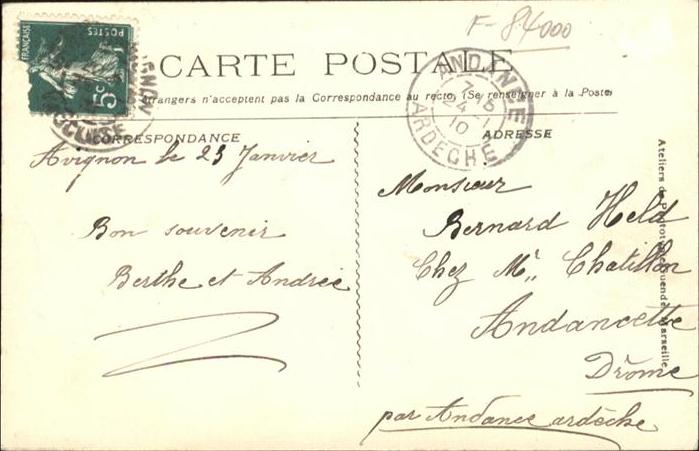 F-84000
FRANÇAISE
POSTES
5c
AVIGNON
VAUCLUSE
CARTE POSTALE
étrangers n'acceptent pas la Correspondance au recto, (Se renseigner à la Poste)
ANDANCE
7-15
24 - 1
10
ARDECHE
CORRESPONDANCE
ADRESSE
Avignon le 23 Janvier
Bon souvenir
Berthe et Andrée
Monsieur
Bernard Held
Chez Mr. Chatillon
Andancette
Drôme
par Andance ardèche
Ateliers de Marseille